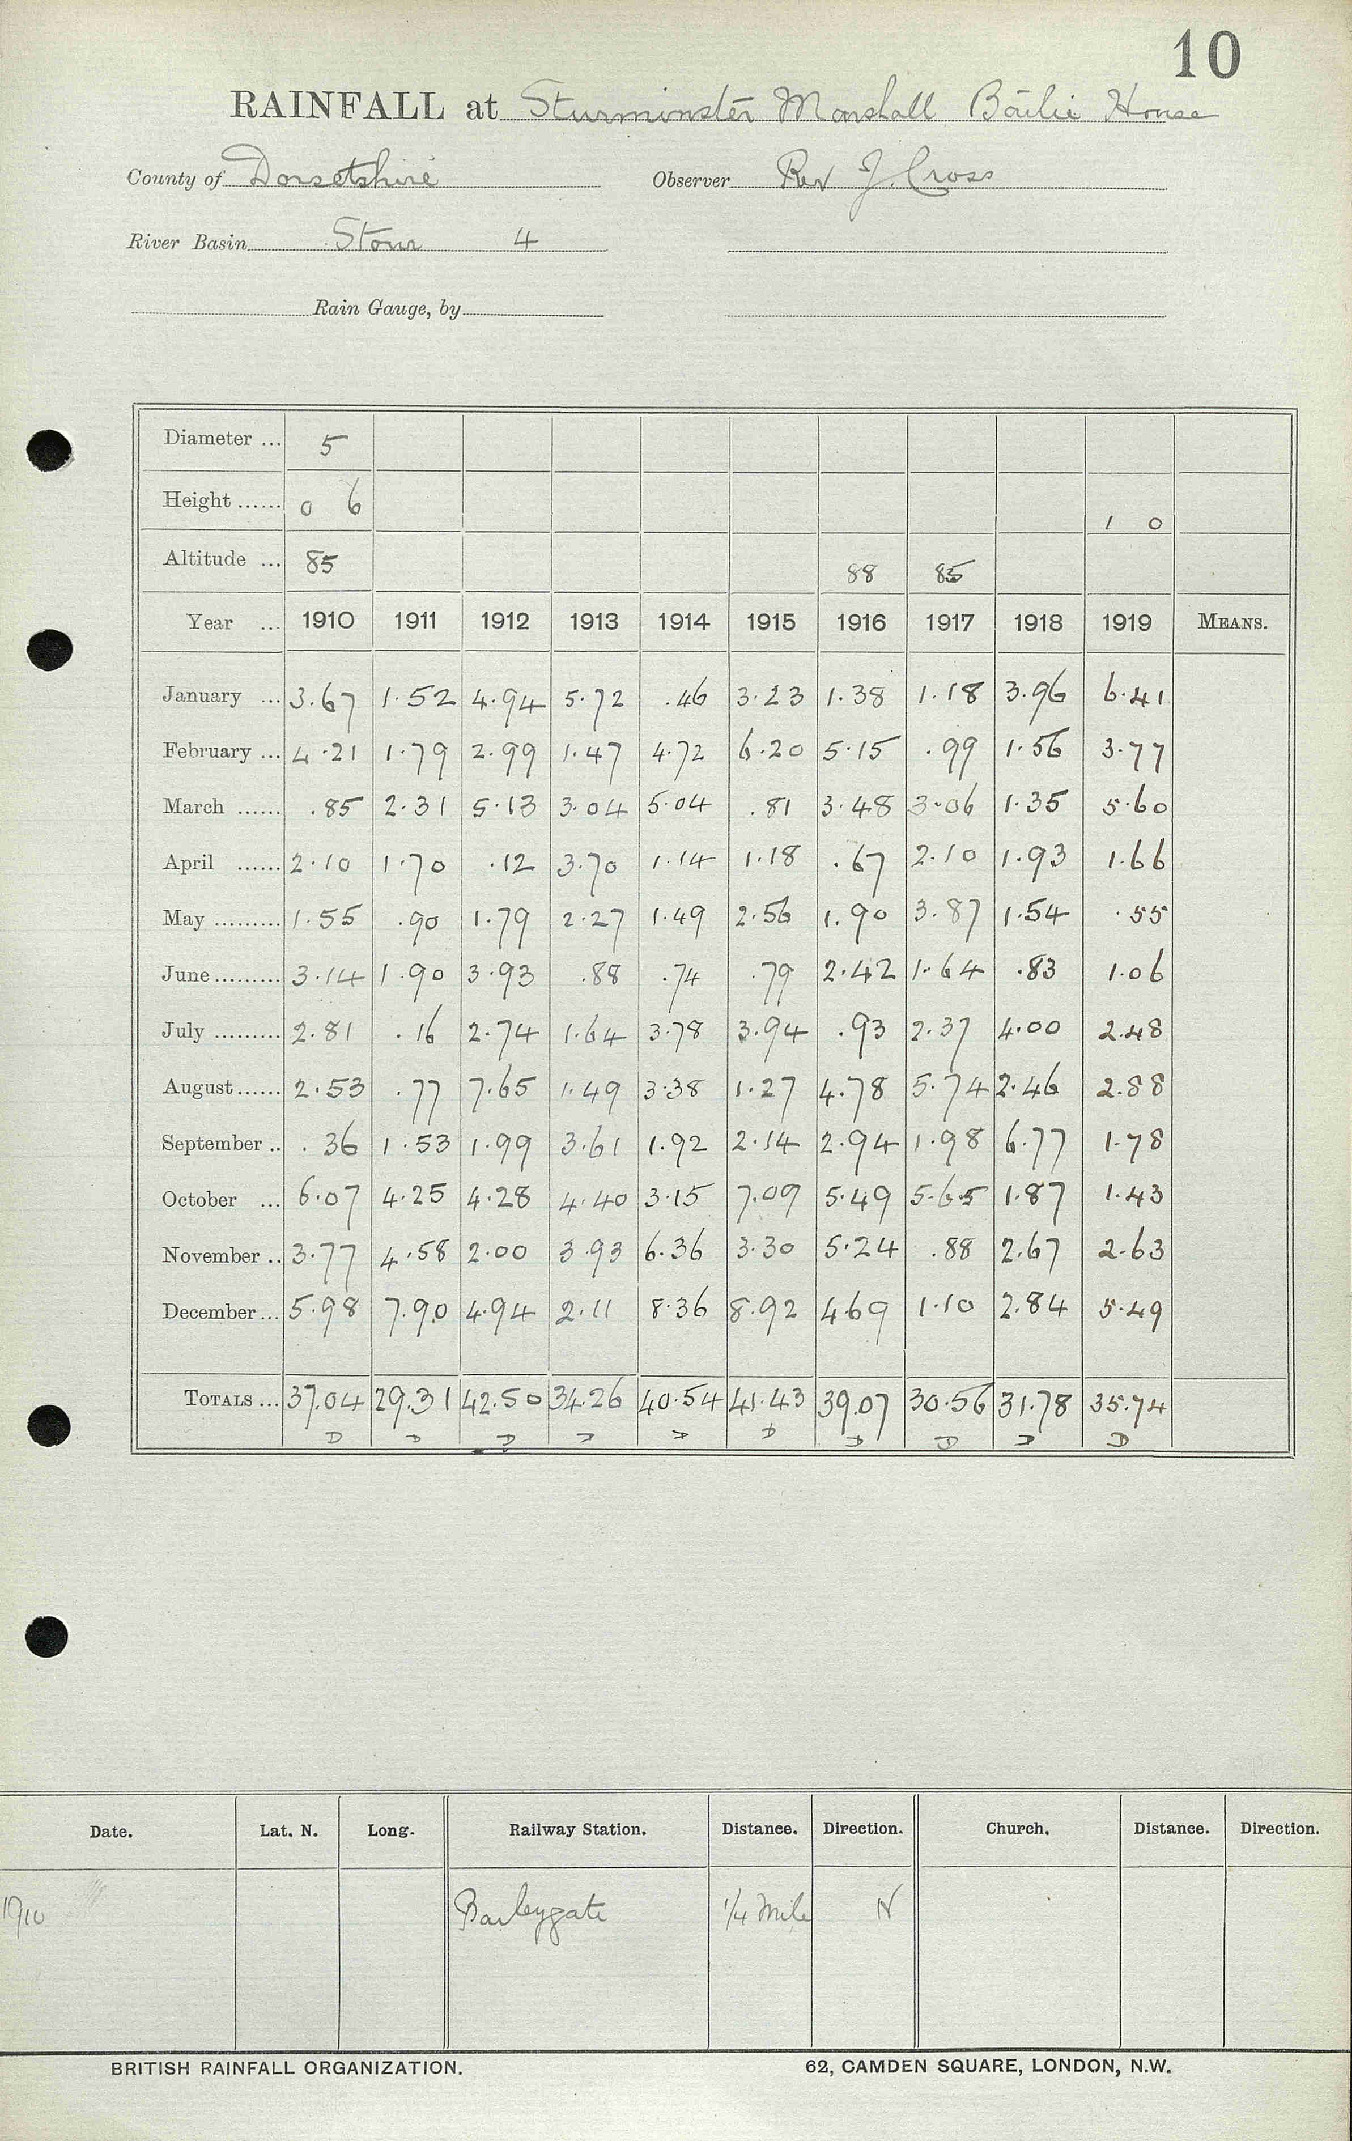 10
RAINFALL at Sturminster Marshall Bailie House
County of Dorsetshire Observer Rev J. Cross
River Basin Stour 4
Rain Gauge, by
Diameter ... 5
Height ...... 0 6 1 0
Altitude ... 85 88 85
Year ... 1910 1911 1912 1913 1914 1915 1916 1917 1918 1919 MEANS.
January ... 3.67 1.52 4.94 5.72 .46 3.23 1.38 1.18 3.96 6.41
February ... 4.21 1.79 2.99 1.47 4.72 6.20 5.15 .99 1.56 3.77
March ...... .85 2.31 5.13 3.04 5.04 .81 3.48 3.06 1.35 5.60
April ...... 2.10 1.70 .12 3.70 1.14 1.18 .67 2.10 1.93 1.66
May ......... 1.55 .90 1.79 2.27 1.49 2.56 1.90 3.87 1.54 .55
June ......... 3.14 1.90 3.93 .88 .74 .79 2.42 1.64 .83 1.06
July ......... 2.81 .16 2.74 1.64 3.78 3.94 .93 2.37 4.00 2.48
August ...... 2.53 .77 7.65 1.49 3.38 1.27 4.78 5.74 2.46 2.88
September .. .36 1.53 1.99 3.61 1.92 2.14 2.94 1.98 6.77 1.78
October ... 6.07 4.25 4.28 4.40 3.15 7.09 5.49 5.65 1.87 1.43
November .. 3.77 4.58 2.00 3.93 6.36 3.30 5.24 .88 2.67 2.63
December ... 5.98 7.90 4.94 2.11 8.36 8.92 4.69 1.10 2.84 5.49
TOTALS ... 37.04 29.31 42.50 34.26 40.54 41.43 39.07 30.56 31.78 35.74
D D D D D D D D D D
Date. Lat. N. Long. Railway Station. Distance. Direction. Church. Distance. Direction.
1910 Baileygate 1/4 Mile N
BRITISH RAINFALL ORGANIZATION. 62, CAMDEN SQUARE, LONDON, N.W.